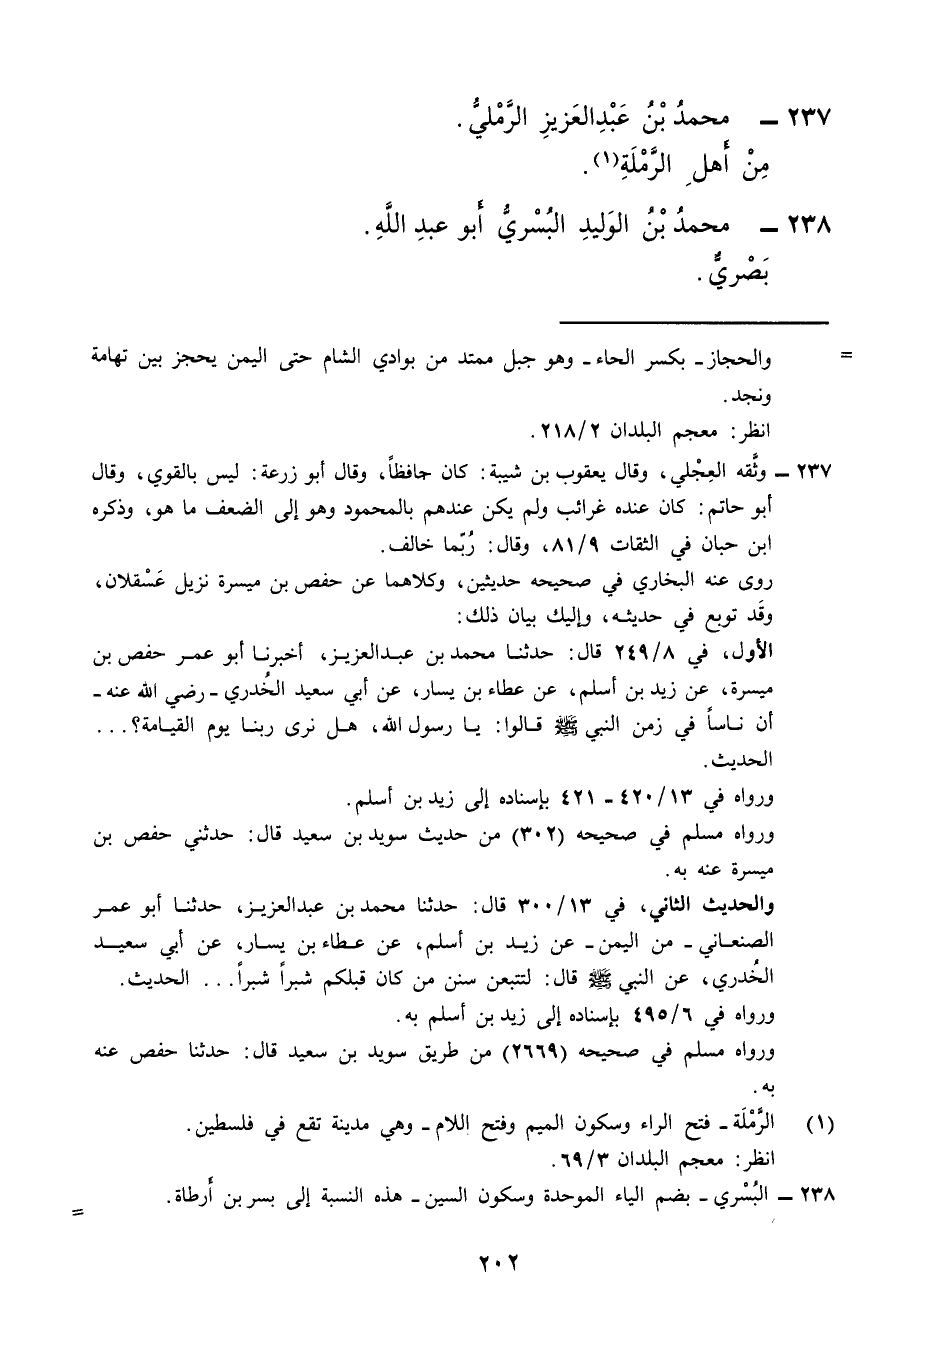 ٢٣٧ ــ محمدُ بْنُ عَبْدِالعَزيزِ الرَّمْليُّ.
مِنْ أَهلِ الرَّمْلَةِ(١).
٢٣٨ ــ محمدُ بْنُ الوَليدِ البُسْريُّ أَبو عبدِ اللَّهِ.
بَصْريٌّ.
= والحجاز ـ بكسر الحاء ـ وهو جبل ممتد من بوادي الشام حتى اليمن يحجز بين تهامة
ونجد.
انظر: معجم البلدان ٢١٨/٢.
٢٣٧ ــ وثَّقه العِجْلي، وقال يعقوب بن شيبة: كان حافظاً، وقال أبو زرعة: ليس بالقوي، وقال
أبو حاتم: كان عنده غرائب ولم يكن عندهم بالمحمود وهو إلى الضعف ما هو، وذكره
ابن حبان في الثقات ٨١/٩، وقال: رُبَّما خالف.
روى عنه البخاري في صحيحه حديثين، وكلاهما عن حفص بن ميسرة نزيل عَسْقلان،
وقَد توبع في حديثه، وإليك بيان ذلك:
الأول، في ٢٤٩/٨ قال: حدثنا محمد بن عبدالعزيز، أخبرنا أبو عمر حفص بن
ميسرة، عن زيد بن أسلم، عن عطاء بن يسار، عن أبي سعيد الخُدري ـ رضي الله عنه ـ
أن ناساً في زمن النبي ﷺ قالوا: يا رسول الله، هل نرى ربنا يوم القيامة؟...
الحديث.
ورواه في ٤٢٠/١٣ ـ ٤٢١ بإسناده إلى زيد بن أسلم.
ورواه مسلم في صحيحه (٣٠٢) من حديث سويد بن سعيد قال: حدثني حفص بن
ميسرة عنه به.
والحديث الثاني، في ٣٠٠/١٣ قال: حدثنا محمد بن عبدالعزيز، حدثنا أبو عمر
الصنعاني ـ من اليمن ـ عن زيد بن أسلم، عن عطاء بن يسار، عن أبي سعيد
الخُدري، عن النبي ﷺ قال: لتتبعن سنن من كان قبلكم شبراً شبراً... الحديث.
ورواه في ٤٩٥/٦ بإسناده إلى زيد بن أسلم به.
ورواه مسلم في صحيحه (٢٦٦٩) من طريق سويد بن سعيد قال: حدثنا حفص عنه
به.
(١) الرَّمْلَة ـ فتح الراء وسكون الميم وفتح اللام ـ وهي مدينة تقع في فلسطين.
انظر: معجم البلدان ٦٩/٣.
٢٣٨ ــ البُسْري ـ بضم الياء الموحدة وسكون السين ـ هذه النسبة إلى بسر بن أَرطاة. =
٢٠٢